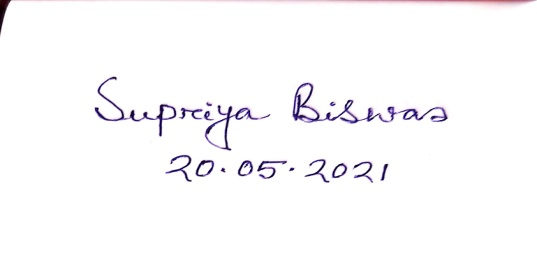 Supriya Biswas
20.05.2021